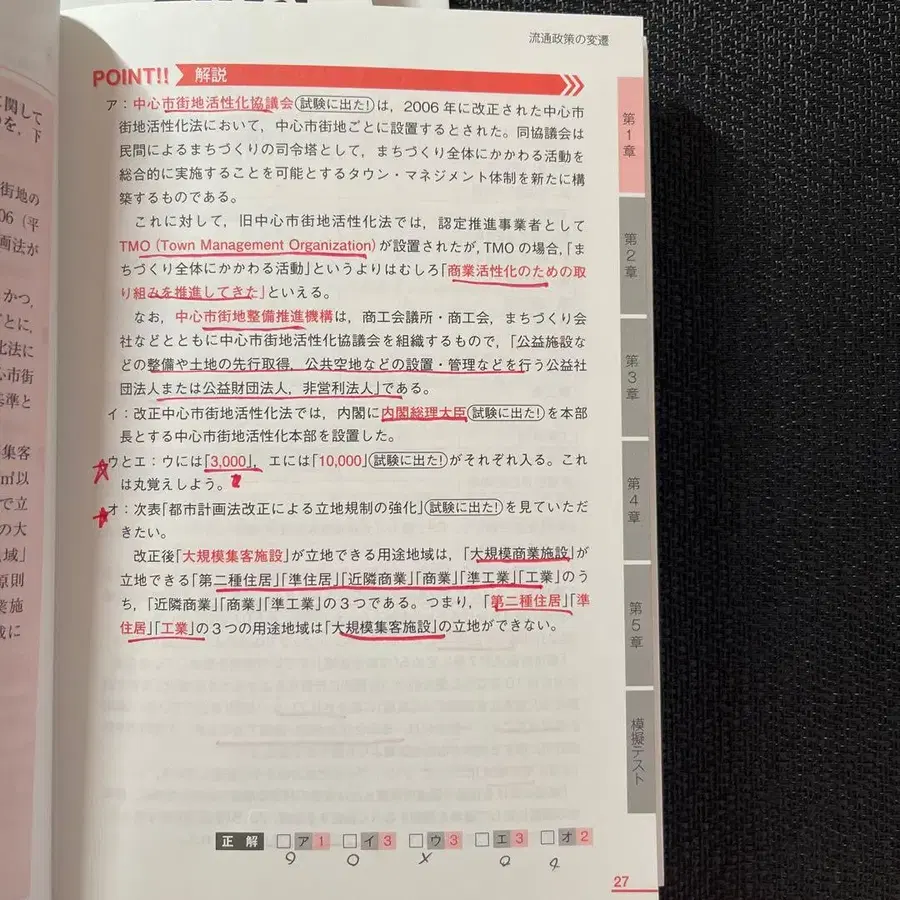 に関して
を，下
街地の
06（平
画法が
かつ，
ごとに，
化法に
心市街
基準と
集客
㎡以
で立
の大
域」
原則
業施
成に
流通政策の変遷
POINT!! 解説
ア：中心市街地活性化協議会(試験に出た!)は，2006年に改正された中心市
街地活性化法において，中心市街地ごとに設置するとされた。同協議会は
民間によるまちづくりの司令塔として，まちづくり全体にかかわる活動を
総合的に実施することを可能とするタウン・マネジメント体制を新たに構
築するものである。
これに対して，旧中心市街地活性化法では，認定推進事業者として
TMO (Town Management Organization)が設置されたが，TMOの場合，「ま
ちづくり全体にかかわる活動」というよりはむしろ「商業活性化のための取
り組みを推進してきた」といえる。
なお，中心市街地整備推進機構は，商工会議所・商工会，まちづくり会
社などとともに中心市街地活性化協議会を組織するもので，「公益施設な
どの整備や土地の先行取得，公共空地などの設置・管理などを行う公益社
団法人または公益財団法人，非営利法人」である。
イ：改正中心市街地活性化法では，内閣に内閣総理大臣(試験に出た!)を本部
長とする中心市街地活性化本部を設置した。
ウとエ：ウには「3,000」，エには「10,000」(試験に出た!)がそれぞれ入る。これ
は丸覚えしよう。
オ：次表「都市計画法改正による立地規制の強化」(試験に出た!)を見ていただ
きたい。
改正後「大規模集客施設」が立地できる用途地域は，「大規模商業施設」が
立地できる「第二種住居」「準住居」「近隣商業」「商業」「準工業」「工業」のう
ち，「近隣商業」「商業」「準工業」の3つである。つまり，「第二種住居」「準
住居」「工業」の3つの用途地域は「大規模集客施設」の立地ができない。
第1章
第2章
第3章
第4章
第5章
模擬テスト
正解 □ア1 □イ3 □ウ3 □エ3 □オ2
27